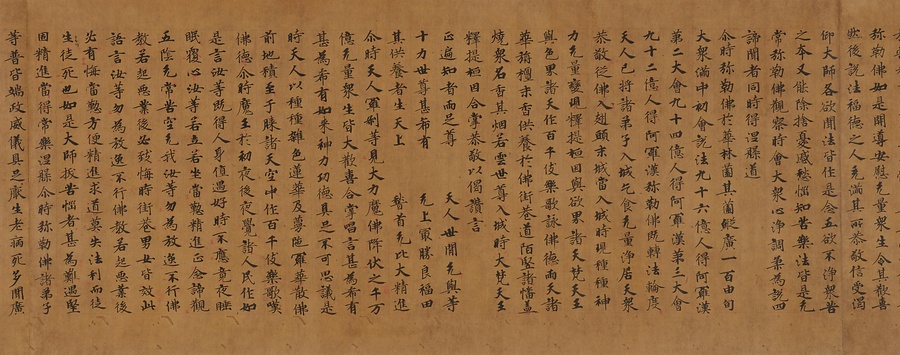 弥勒佛如是開導安慰无量衆生令其歡喜
然後說法福德之人充滿其所恭敬信受渴
仰大師各欲聞法皆作是念五欲不淨衆苦
之本又能除捨憂慼愁惱知苦樂法皆是无
常弥勒佛觀察時會大衆心淨調柔為說四
諦聞者同時得涅槃道
尒時弥勒佛於華林薗其薗縱廣一百由旬
大衆滿中初會說法九十六億人得阿羅漢
第二大會九十四億人得阿羅漢第三大會
九十二億人得阿羅漢弥勒佛既轉法輪度
天人已將諸弟子入城乞食无量淨居天衆
恭敬從佛入翅頭末城當入城時現種種神
力无量變現釋提桓因與欲界諸天梵天王
與色界諸天作百千伎樂歌詠佛德雨天諸
華栴檀末香供養於佛街巷道陌竪諸幡盖
燒衆名香其烟若雲世尊入城時大梵天王
釋提桓因合掌恭敬以偈讚言
正遍知者兩足尊 天人世間无與等
十力世尊甚希有 无上最勝良福田
其供養者生天上 稽首无比大精進
尒時天人羅刹等見大力魔佛降伏之千万
億无量衆生皆大歡喜合掌唱言甚為希有
甚為希有如來神力功德具足不可思議是
時天人以種種雜色蓮華及曼陁羅華散佛
前地積至于膝諸天空中作百千伎樂歌嘆
佛德尒時魔王於初夜後夜覺諸人民作如
是言汝等既得人身值遇好時不應竟夜睡
眠覆心汝等若立若坐當懃精進正念諦觀
五陰无常苦空无我汝等勿為放逸不行佛
教若起惡業後必致悔時街巷男女皆效此
語言汝等勿為放逸不行佛教若起惡業後
必有悔當懃方便精進求道莫失法利而徒
生徒死也如是大師拔苦惱者甚為難遇堅
固精進當得常樂涅槃尒時弥勒佛諸弟子
等普皆端政威儀具足厭生老病死多聞廣